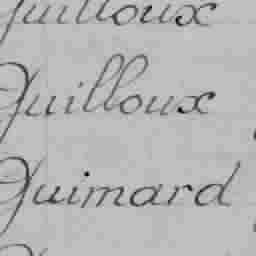 Guilloux
Guilloux
Guimard